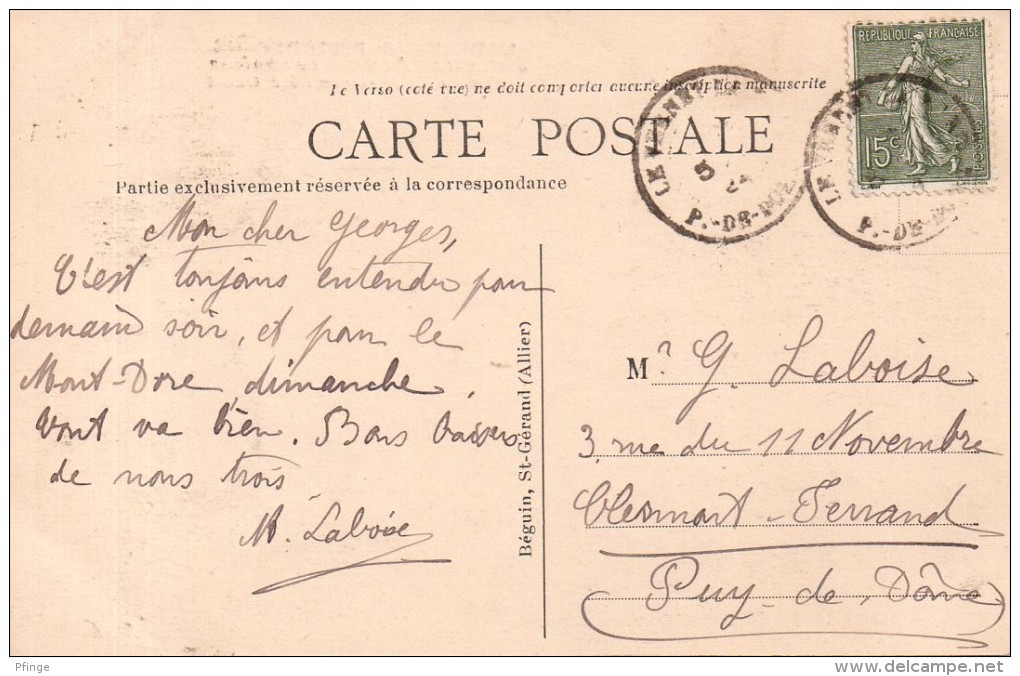 Le Verso (coté vue) ne doit comporter aucune inscription manuscrite
RÉPUBLIQUE FRANÇAISE
15c
POSTES
CARTE POSTALE
LE VERNET
5
24
P.-DE-DOME
P.-DE-D
Partie exclusivement réservée à la correspondance
Mon cher Georges,
C'est toujours entendu pour
demain soir, et pour le
Mont-Dore, dimanche.
Tout va bien. Bons baisers
de nous trois
M. Laboise
Béguin, St-Gérand (Allier)
Mr G. Laboise
3, rue du 11 Novembre
Clermont-Ferrand
Puy-de-Dôme
Pfinge
www.delcampe.net